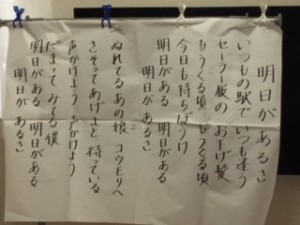 明日があるさ
いつもの駅でいつも逢う
セーラー服の お下げ髪
もうくる頃 もうくる頃
今日も待ちぼうけ
明日がある 明日がある
明日が あるさ
ぬれてるあの娘 コウモリへ
さそってあげよと 待っている
声かけよう 声かけよう
だまってみてる僕
明日がある 明日がある
明日が あるさ